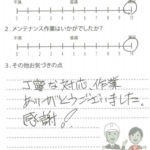 不満 普通 満足
0 1 2 3 4 5 6 7 8 9 10
2.メンテナンス作業はいかがでしたか?
不満 普通 満足
0 1 2 3 4 5 6 7 8 9 10
3.その他お気づきの点
丁寧な対応、作業
ありがとうございました。
感謝!!